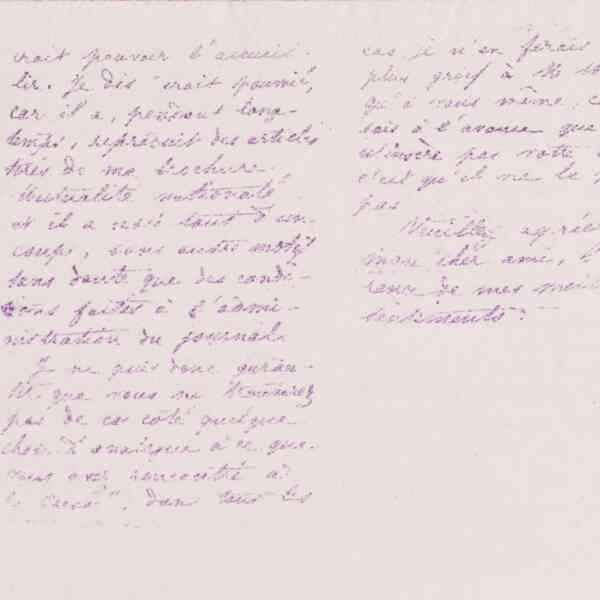 vrait pouvoir l'accueil-
lir. Je dis "vrait pouvoir",
car il a, pendant long-
temps, reproduit des articles
tirés de ma brochure
"Mutualité nationale"
et il a cessé tout d'un
coup, sans autre motif
sans doute que des condi-
tions faites à l'admi-
nistration du journal.
Je ne puis donc garan-
tir que vous ne trouverez
pas de ce côté quelque
chose d'analogue à ce que
vous avez rencontré à
dans tous les
cas je n'en ferais
plus grief à M.
qu'à vous même,
à l'avance que
n'insère pas votre
c'est qu'il ne le
pas
Veuillez agréer
mon cher ami, l'
de mes meil
sentiments.